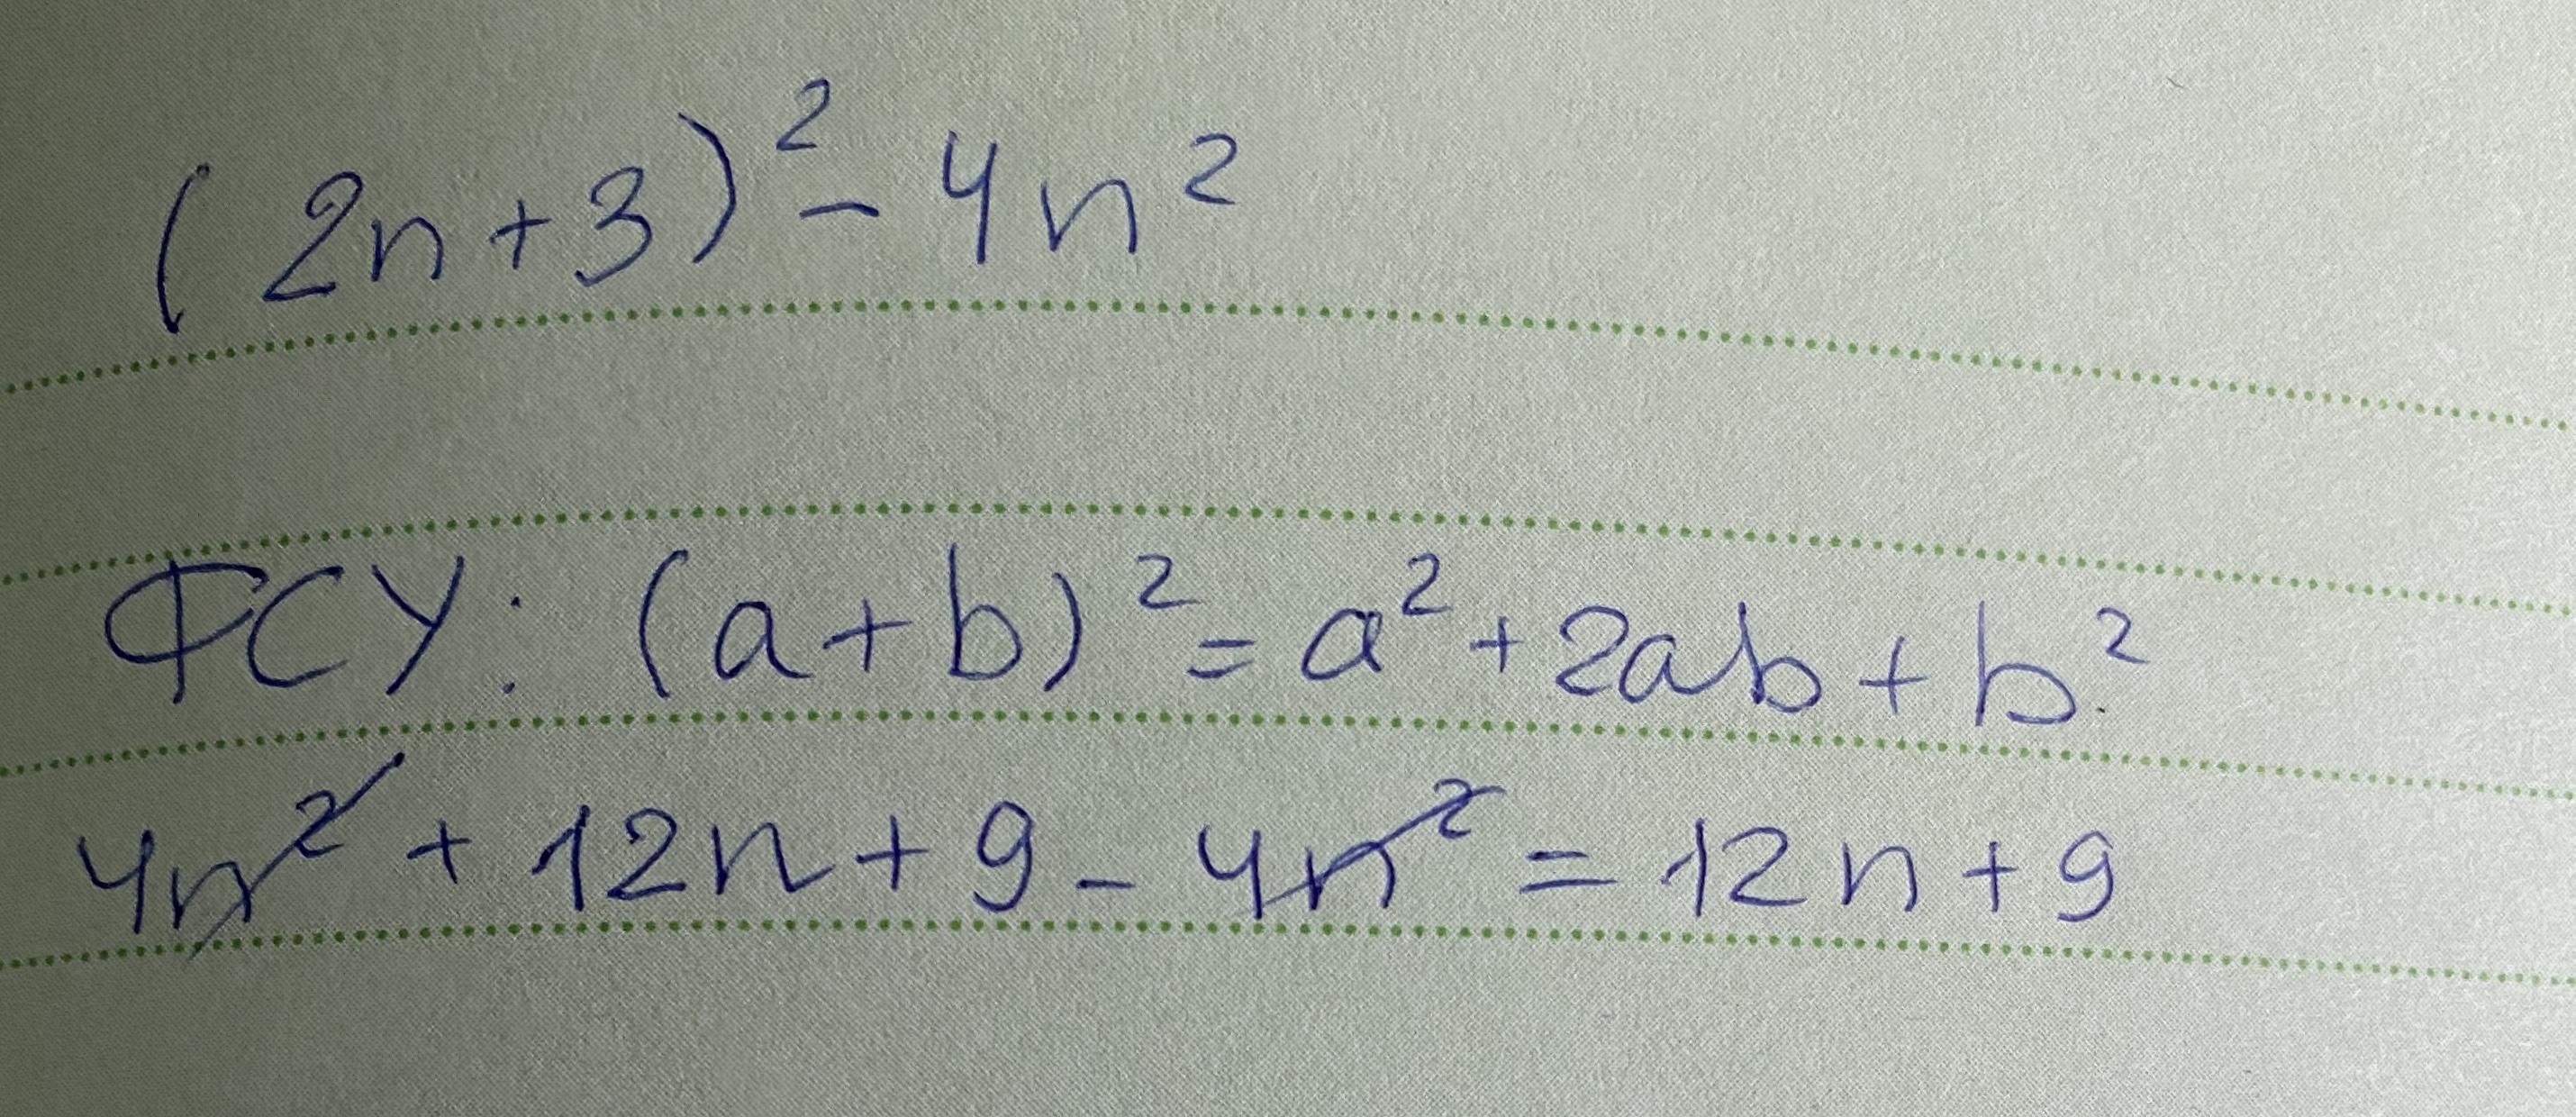 (2n+3)² - 4n²
ФСУ: (a+b)² = a² + 2ab + b².
4n² + 12n + 9 - 4n² = 12n + 9